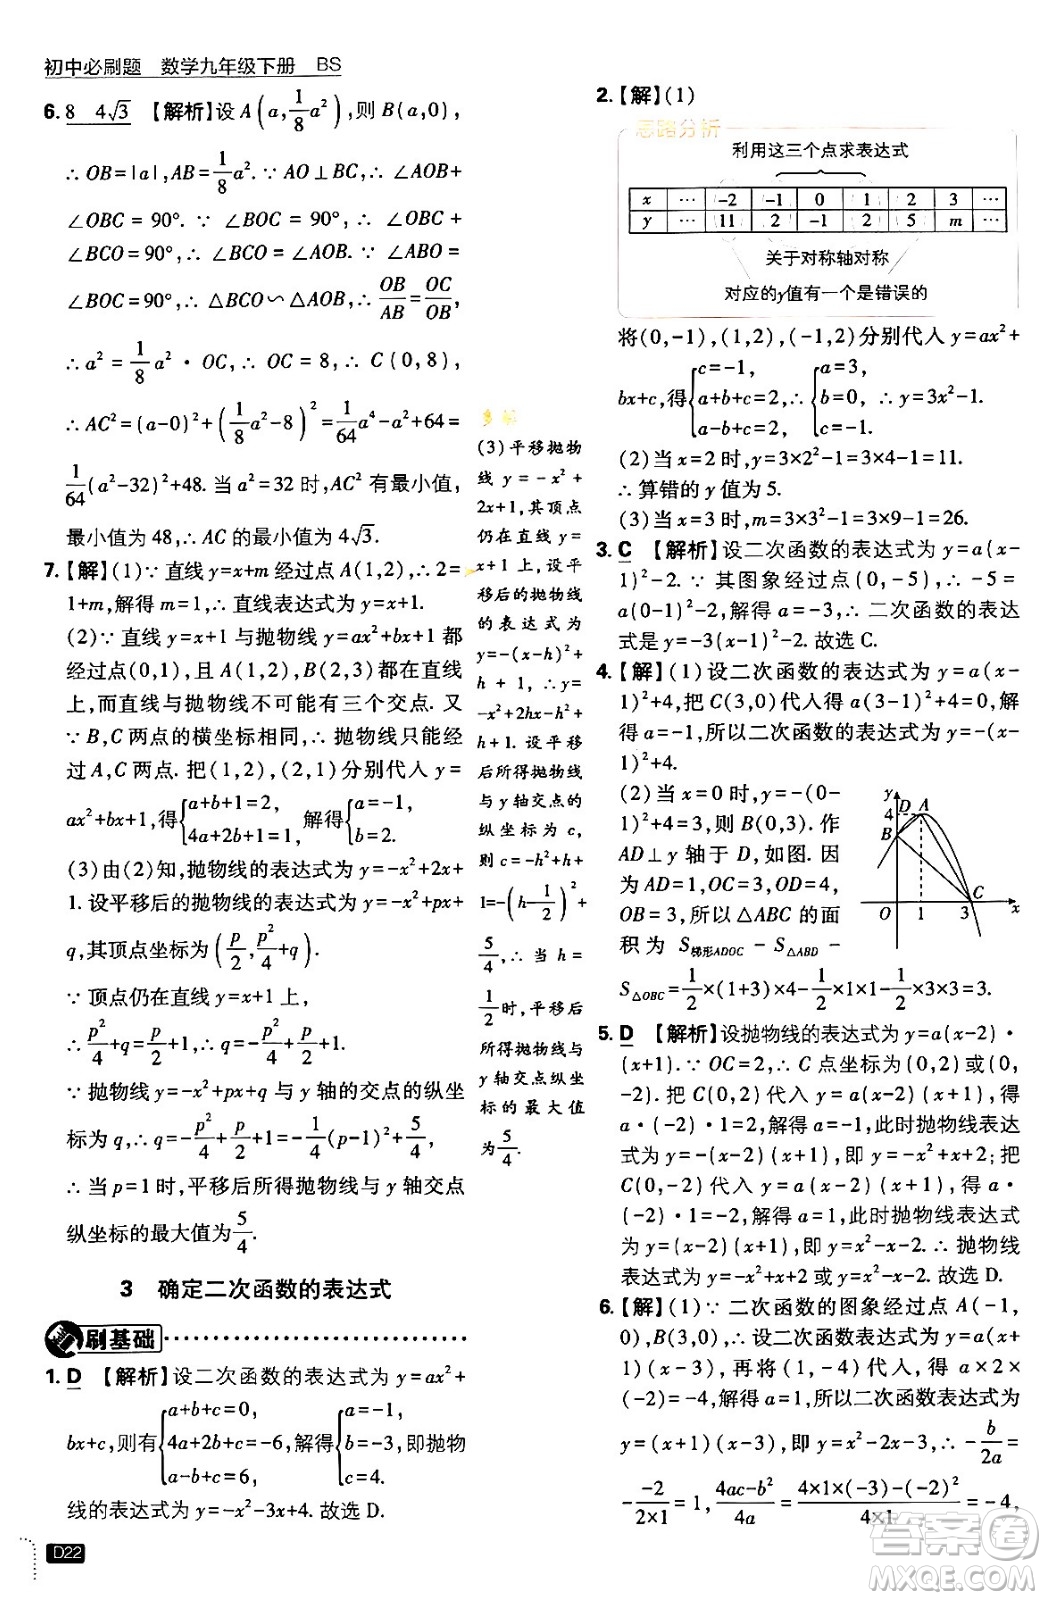 初中必刷题 数学九年级下册 BS
6. 8 4√3 【解析】设 A(a, 1/8 a²), 则 B(a,0),
∴ OB=|a|, AB=1/8 a². ∵ AO⊥BC, ∴ ∠AOB+
∠OBC = 90°. ∵ ∠BOC = 90°, ∴ ∠OBC +
∠BCO = 90°, ∴ ∠AOB = ∠BCO. ∵ ∠ABO =
∠BOC=90°, ∴ △BCO∽△AOB, ∴ OB/AB=OC/OB,
∴ a² = 1/8 a² · OC, ∴ OC = 8, ∴ C(0,8),
∴ AC²=(a-0)²+(1/8 a²-8)²=1/64 a⁴-a²+64=
1/64(a²-32)²+48. 当 a²=32 时, AC² 有最小值,
最小值为 48, ∴ AC 的最小值为 4√3.
7.【解】(1)∵ 直线 y=x+m 经过点 A(1,2), ∴ 2=
1+m, 解得 m=1, ∴ 直线表达式为 y=x+1.
(2)∵ 直线 y=x+1 与抛物线 y=ax²+bx+1 都
经过点(0,1), 且 A(1,2), B(2,3)都在直线
上, 而直线与抛物线不可能有三个交点. 又
∵ B,C 两点的横坐标相同, ∴ 抛物线只能经
过 A,C 两点. 把(1,2),(2,1)分别代入 y=
ax²+bx+1, 得{a+b+1=2, 4a+2b+1=1, 解得{a=-1, b=2.
(3)由(2)知, 抛物线的表达式为 y=-x²+2x+
1. 设平移后的抛物线的表达式为 y=-x²+px+
q, 其顶点坐标为(p/2, p²/4+q).
∵ 顶点仍在直线 y=x+1 上,
∴ p²/4+q=p/2+1, ∴ q=-p²/4+p/2+1.
∵ 抛物线 y=-x²+px+q 与 y 轴的交点的纵坐
标为 q, ∴ q=-p²/4+p/2+1=-1/4(p-1)²+5/4,
∴ 当 p=1 时, 平移后所得抛物线与 y 轴交点
纵坐标的最大值为 5/4.
3 确定二次函数的表达式
刷基础
1. D 【解析】设二次函数的表达式为 y=ax²+
bx+c, 则有{a+b+c=0, 4a+2b+c=-6, a-b+c=6, 解得{a=-1, b=-3, c=4, 即抛物
线的表达式为 y=-x²-3x+4. 故选 D.
D22
(3)平移抛物
线 y = -x² +
2x+1, 其顶点
仍在直线 y=
x+1 上, 设平
移后的抛物线
的表达式为
y=-(x-h)²+
h + 1, ∴ y =
-x²+2hx-h²+
h+1. 设平移
后所得抛物线
与 y 轴交点的
纵坐标为 c,
则 c=-h²+h+
1=-(h-1/2)²+
5/4, ∴ 当 h =
1/2 时, 平移后
所得抛物线与
y 轴交点纵坐
标的最大值
为 5/4.
2.【解】(1)
思路分析
利用这三个点求表达式
x … -2 -1 0 1 2 3 …
y … 11 2 -1 2 5 m …
关于对称轴对称
对应的y值有一个是错误的
将(0,-1),(1,2),(-1,2)分别代入 y=ax²+
bx+c, 得{c=-1, a+b+c=2, a-b+c=2, ∴ {a=3, b=0, c=-1, ∴ y=3x²-1.
(2)当 x=2 时, y=3×2²-1=3×4-1=11,
∴ 算错的 y 值为 5.
(3)当 x=3 时, m=3×3²-1=3×9-1=26.
3. C 【解析】设二次函数的表达式为 y=a(x-
1)²-2. ∵ 其图象经过点(0,-5), ∴ -5=
a(0-1)²-2, 解得 a=-3, ∴ 二次函数的表达
式是 y=-3(x-1)²-2. 故选 C.
4.【解】(1)设二次函数的表达式为 y=a(x-
1)²+4, 把 C(3,0)代入得 a(3-1)²+4=0, 解
得 a=-1, 所以二次函数的表达式为 y=-(x-
1)²+4.
(2)当 x=0 时, y=-(0-
1)²+4=3, 则 B(0,3). 作
AD⊥y 轴于 D, 如图. 因
为 AD=1, OC=3, OD=4,
OB=3, 所以△ABC 的面
积为 S梯形ADOC - S△ABD -
y
4 D A
B
C
O 1 3 x
S△OBC=1/2×(1+3)×4-1/2×1×1-1/2×3×3=3.
5. D 【解析】设抛物线的表达式为 y=a(x-2)·
(x+1). ∵ OC=2, ∴ C 点坐标为(0,2)或(0,
-2). 把 C(0,2)代入 y=a(x-2)(x+1), 得
a·(-2)·1=2, 解得 a=-1, 此时抛物线表达
式为 y=-(x-2)(x+1), 即 y=-x²+x+2; 把
C(0,-2)代入 y=a(x-2)(x+1), 得 a·
(-2)·1=-2, 解得 a=1, 此时抛物线表达式
为 y=(x-2)(x+1), 即 y=x²-x-2. ∴ 抛物线
表达式为 y=-x²+x+2 或 y=x²-x-2. 故选 D.
6.【解】(1)∵ 二次函数的图象经过点 A(-1,
0), B(3,0), ∴ 设二次函数表达式为 y=a(x+
1)(x-3), 再将(1,-4)代入, 得 a×2×
(-2)=-4, 解得 a=1, 所以二次函数表达式为
y=(x+1)(x-3), 即 y=x²-2x-3, ∴ -b/2a=
-(-2)/(2×1)=1, (4ac-b²)/4a=(4×1×(-3)-(-2)²)/(4×1)=-4,
答案圈
MXQE.COM